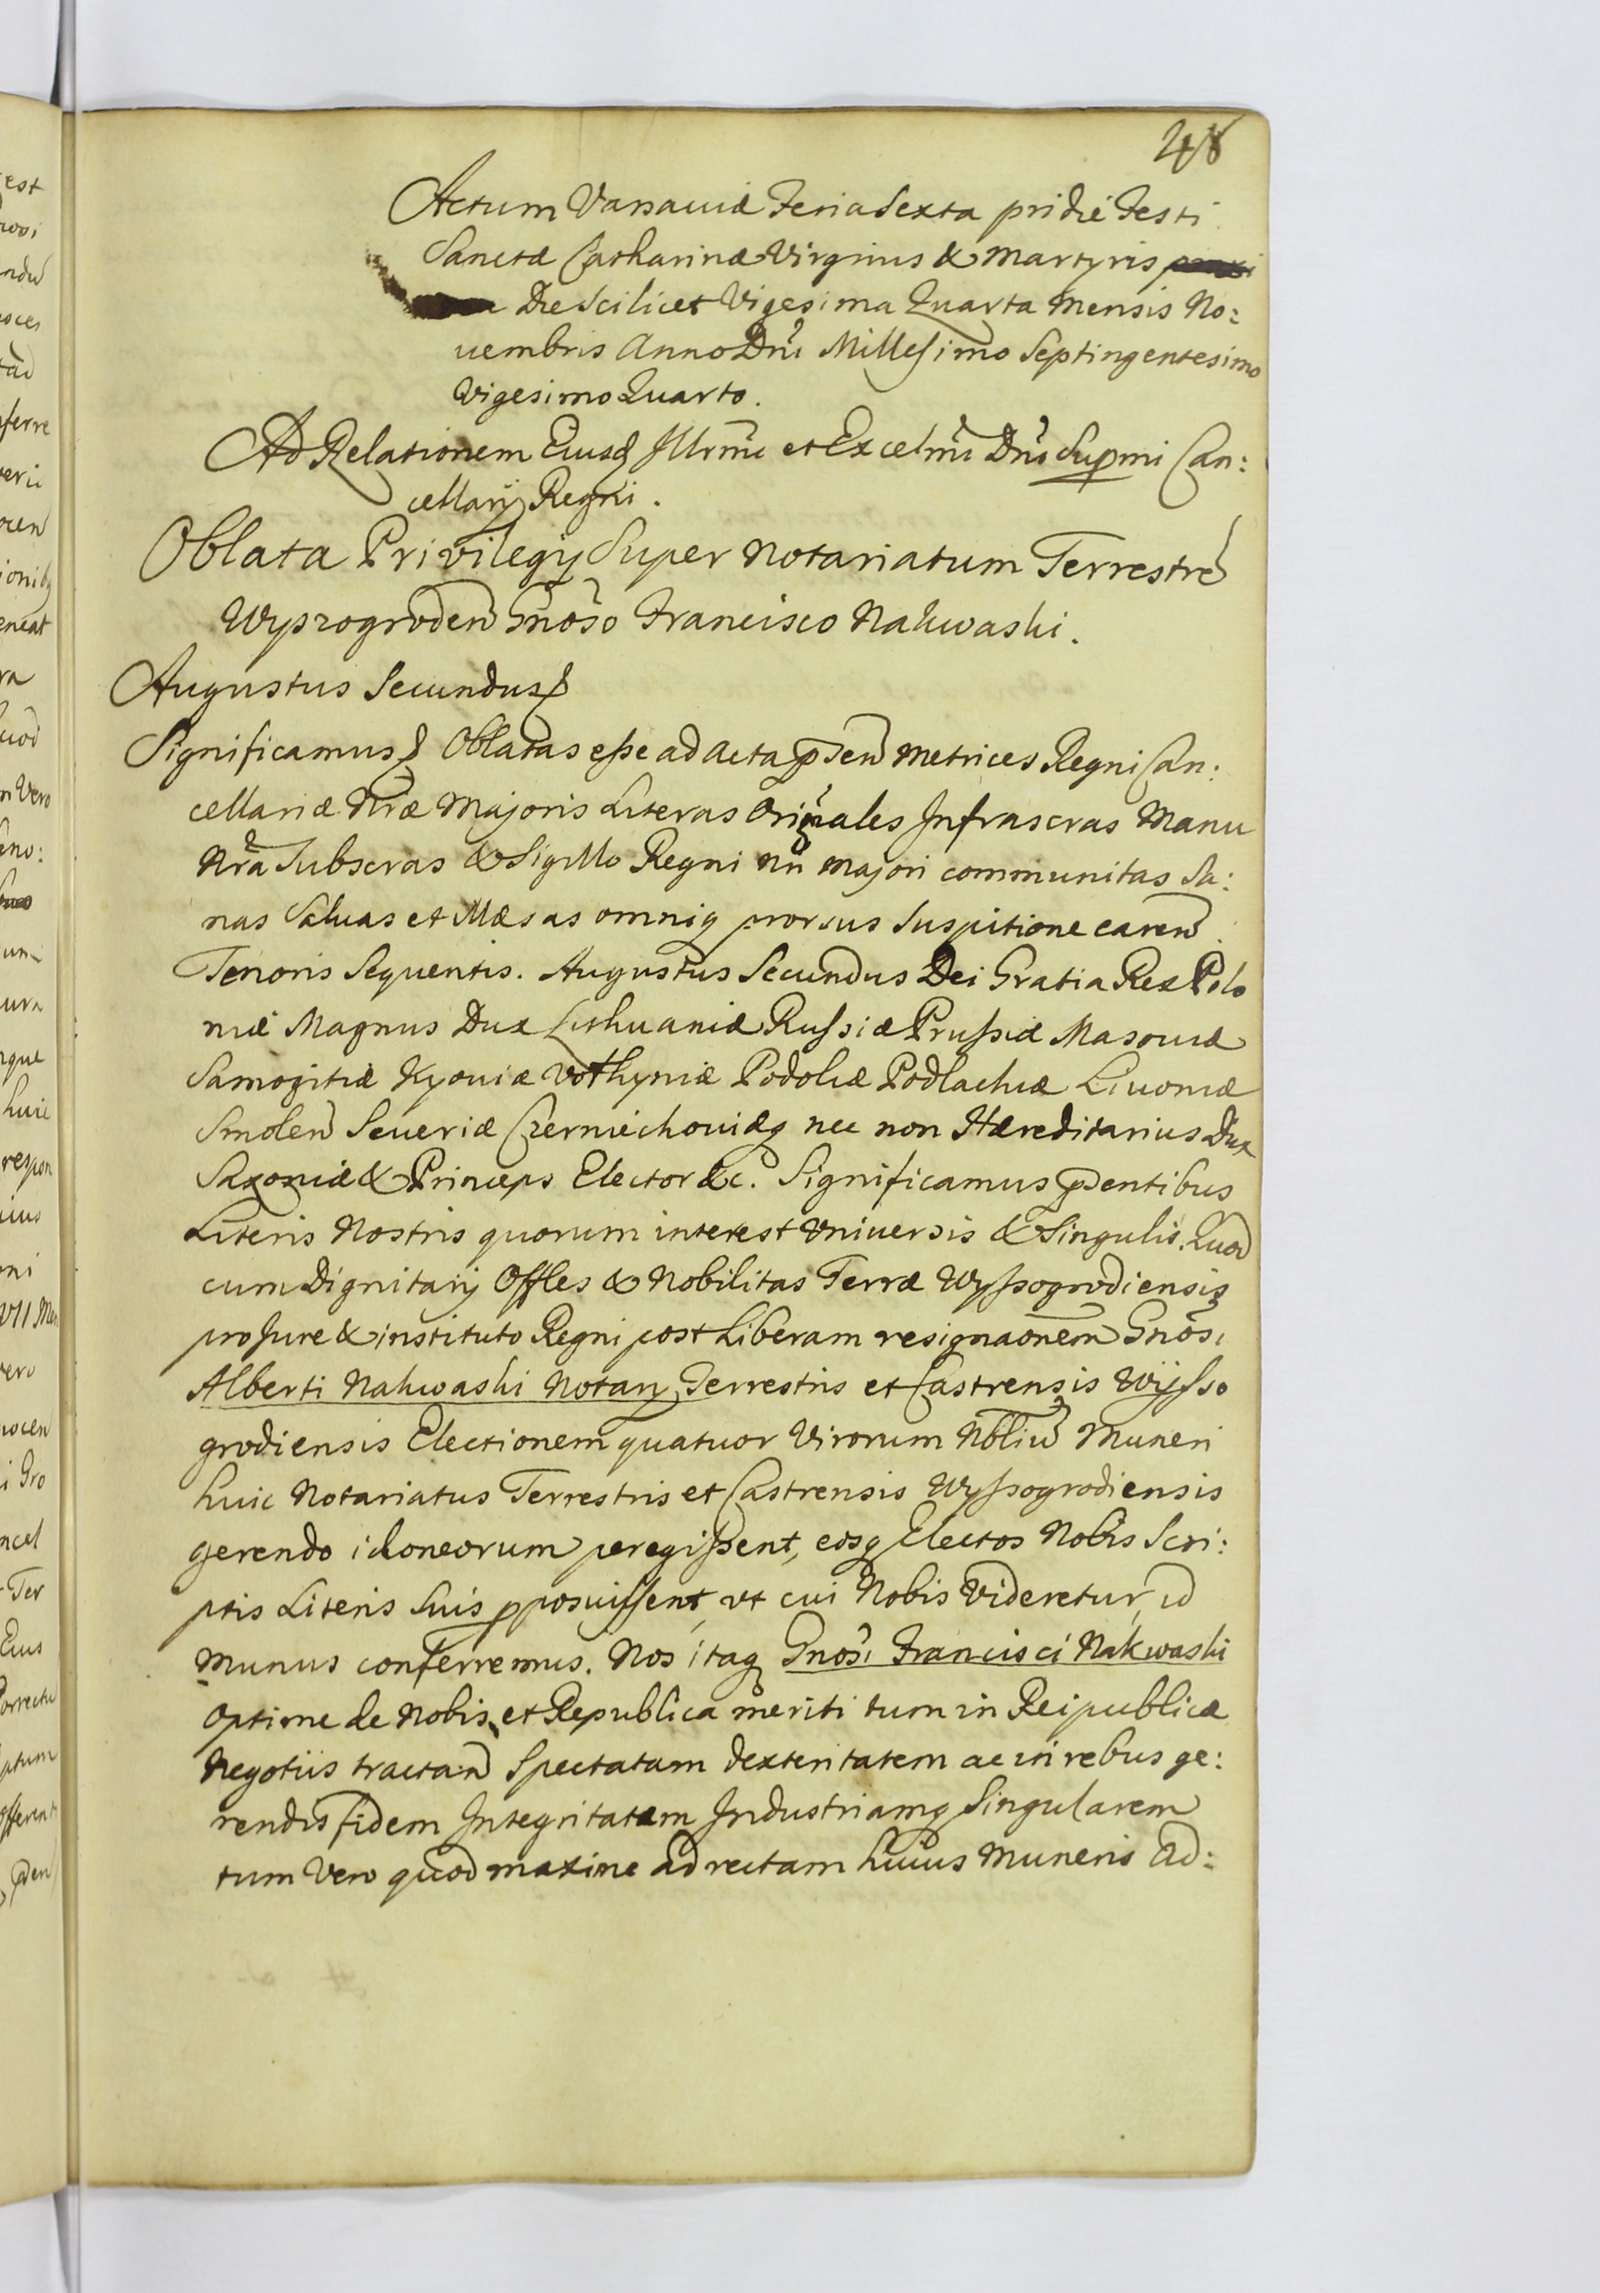 48
Actum Varsaviæ Feria Sexta pridie Festi
Sanctæ Catharinæ Virginis & Martyris
Die Scilicet Vigesima Quarta Mensis No:
uembris Anno Dni Millesimo Septingentesimo
Vigesimo Quarto.
Ad Relationem Eiusd Illrmi et Excelmi Dni Supmi Can:
cellarij Regni.
Oblata Privilegij Super Notariatum Terrestre
Wyszogroden Gnoso Francisco Nakwaski.
Augustus Secundus
Significamus Oblatas esse ad Acta pnsen Metrices Regni Can:
cellariæ Nræ Majoris Literas Originales Infrascras Manu
Nra Subscras & Sigillo Regni Nri Majori communitas Sa:
nas Saluas et Illæsas omniq prorsus Suspitione caren
Tenoris Sequentis. Augustus Secundus Dei Gratia Rex Polo
niæ Magnus Dux Lithuaniæ Russiæ Prussiæ Masoviæ
Samogitiæ Kyouiæ Volhyniæ Podoliæ Podlachiæ Liuoniæ
Smolen Seueriæ Czerniechouiæq nec non Hæreditarius Dux
Saxoniæ & Princeps Elector &c. Significamus pntibus
Literis Nostris quorum interest Vniuersis & Singulis. Quod
cum Dignitarij Offles & Nobilitas Terræ Wyssogrodiensis
pro Jure & instituto Regni post Liberam resignaonem Gnosi
Alberti Nakwaski Notarij Terrestris et Castrensis Wysso
grodiensis Electionem quatuor Virorum Nbliu Muneri
huic Notariatus Terrestris et Castrensis Wyssogrodiensis
gerendo idoneorum peregissent, eosq Electos Nobis Scri:
ptis Literis Suis pposuissent, vt cui Nobis Videretur, id
Munus conferremus. Nos itaq Gnosi Francisci Nakwaski
Optime de Nobis et Republica meriti tum in Reipublicæ
Negotiis tractan Spectatam dexteritatem ac in rebus ge:
rendis fidem Integritatem Industriamq Singularem
tum Vero quod maxime ad rectam huius Muneris Ad: